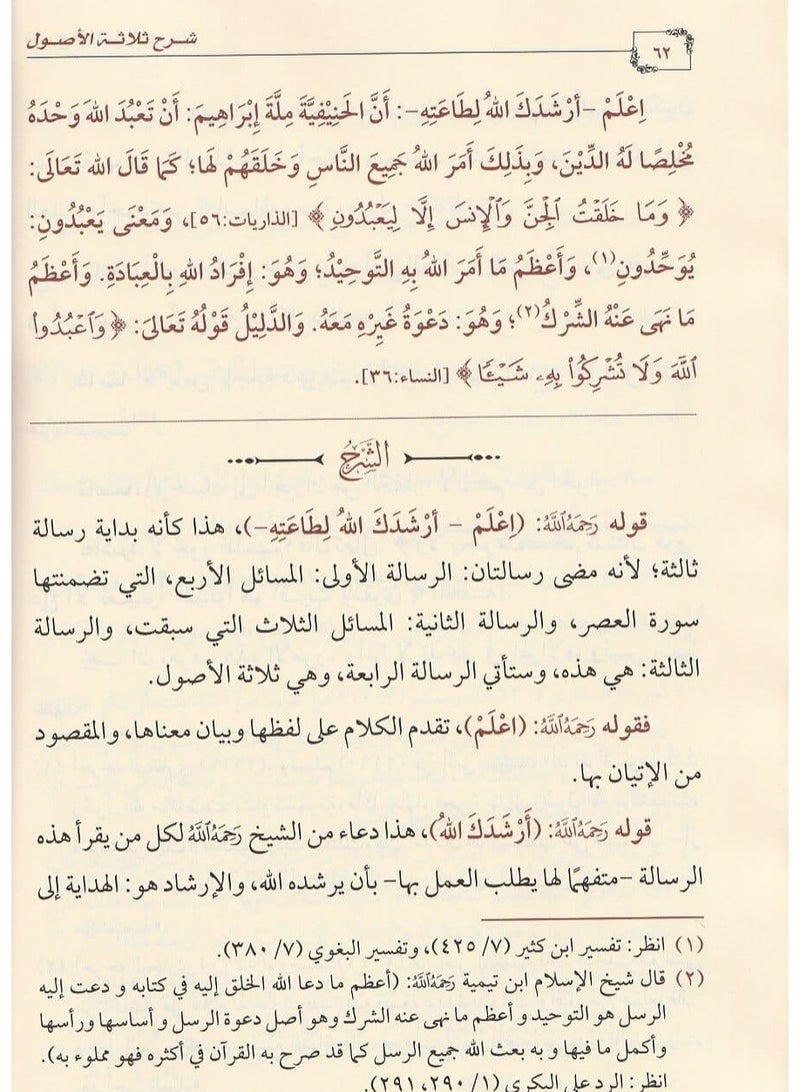 شرح ثلاثة الأصول
٦٢
اِعْلَمْ –أرْشَدَكَ اللهُ لِطَاعَتِهِ–: أَنَّ الحَنِيْفِيَّةَ مِلَّةَ إِبْرَاهِيمَ: أَنْ تَعْبُدَ اللهَ وَحْدَهُ
مُخْلِصًا لَهُ الدِّيْنَ، وَبِذَلِكَ أَمَرَ اللهُ جَمِيعَ النَّاسِ وَخَلَقَهُمْ لَهَا؛ كَمَا قَالَ الله تَعَالَى:
﴿ وَمَا خَلَقْتُ ٱلْجِنَّ وَٱلْإِنسَ إِلَّا لِيَعْبُدُونِ ﴾ [الذاريات:٥٦]، وَمَعْنَى يَعْبُدُونِ:
يُوَحِّدُونِ(١)، وَأَعْظَمُ مَا أَمَرَ اللهُ بِهِ التَّوحِيْدُ؛ وَهُوَ: إِفْرَادُ اللهِ بِالْعِبَادَةِ. وَأَعْظَمُ
مَا نَهَى عَنْهُ الشِّرْكُ(٢)؛ وَهُوَ: دَعْوَةُ غَيْرِهِ مَعَهُ. وَالدَّلِيْلُ قَوْلُهُ تَعَالَى: ﴿ وَٱعْبُدُوا۟
ٱللَّهَ وَلَا تُشْرِكُوا۟ بِهِۦ شَيْـًٔا ﴾ [النساء:٣٦].
الشَّرْحُ
قوله رَحِمَهُ اللَّهُ: (اِعْلَمْ – أرْشَدَكَ اللهُ لِطَاعَتِهِ–)، هذا كأنه بداية رسالة
ثالثة؛ لأنه مضى رسالتان: الرسالة الأولى: المسائل الأربع، التي تضمنتها
سورة العصر، والرسالة الثانية: المسائل الثلاث التي سبقت، والرسالة
الثالثة: هي هذه، وستأتي الرسالة الرابعة، وهي ثلاثة الأصول.
فقوله رَحِمَهُ اللَّهُ: (اعْلَمْ)، تقدم الكلام على لفظها وبيان معناها، والمقصود
من الإتيان بها.
قوله رَحِمَهُ اللَّهُ: (أَرْشَدَكَ اللهُ)، هذا دعاء من الشيخ رَحِمَهُ اللَّهُ لكل من يقرأ هذه
الرسالة –متفهمًا لها يطلب العمل بها– بأن يرشده الله، والإرشاد هو: الهداية إلى
(١) انظر: تفسير ابن كثير (٧/ ٤٢٥)، وتفسير البغوي (٧/ ٣٨٠).
(٢) قال شيخ الإسلام ابن تيمية رَحِمَهُ اللَّهُ: (أعظم ما دعا الله الخلق إليه في كتابه و دعت إليه
الرسل هو التوحيد و أعظم ما نهى عنه الشرك وهو أصل دعوة الرسل و أساسها ورأسها
وأكمل ما فيها و به بعث الله جميع الرسل كما قد صرح به القرآن في أكثره فهو مملوء به).
انظر: الرد على البكري (١/ ٢٩٠، ٢٩١).